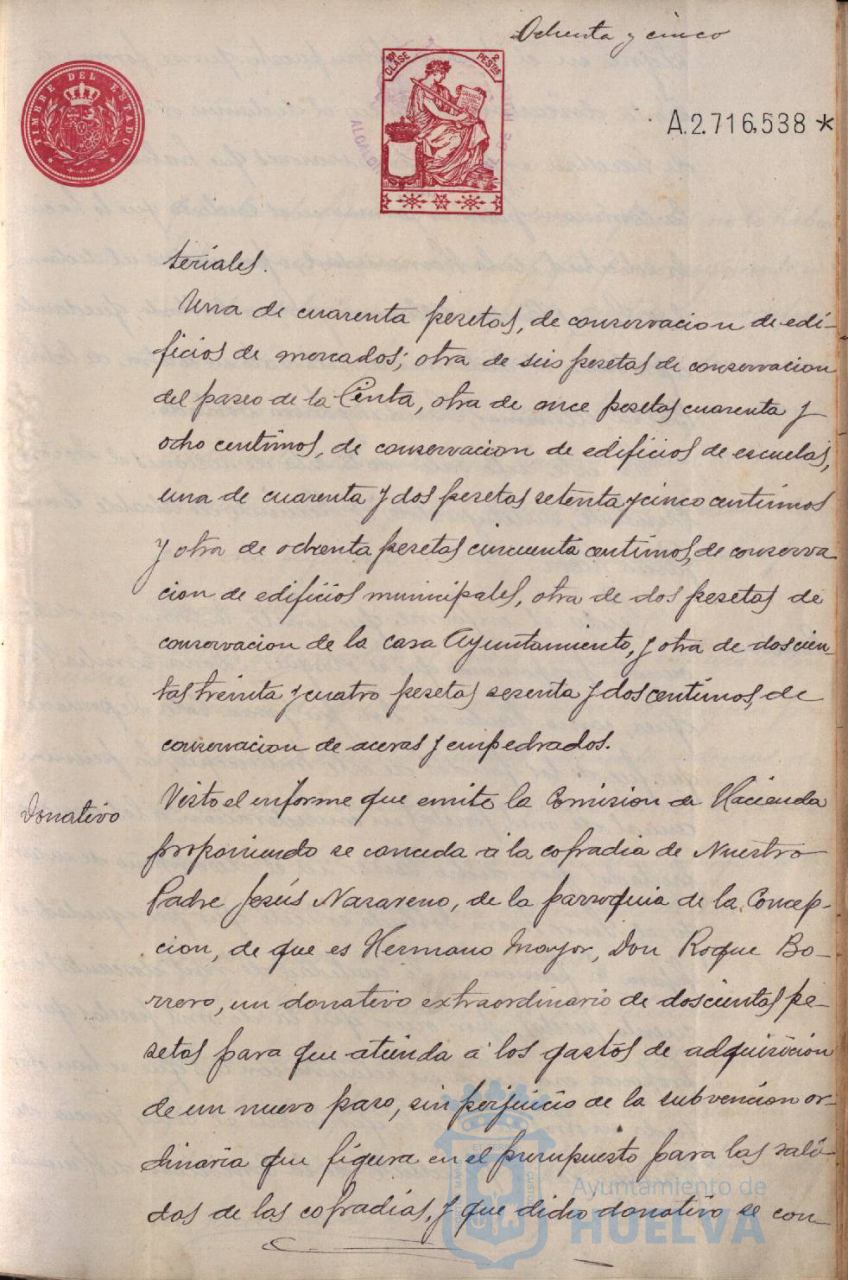 Ochenta y cinco
TIMBRE DEL ESTADO
10ª CLASE 2 PESTAS
ALCALDI
A.2.716.538 *
teriales.
Una de cuarenta pesetas, de conservacion de edi-
ficios de mercados; otra de seis pesetas de conservacion
del paseo de la Cinta, otra de once pesetas cuarenta y
ocho centimos, de conservacion de edificios de escuelas,
una de cuarenta y dos pesetas setenta y cinco centimos
y otra de ochenta pesetas cincuenta centimos, de conserva
cion de edificios municipales, otra de dos pesetas de
conservacion de la casa Ayuntamiento, y otra de doscien-
tas treinta y cuatro pesetas sesenta y dos centimos, de
conservacion de aceras y empedrados.
Donativo
Visto el informe que emite la Comision de Hacienda
proponiendo se conceda á la cofradia de Nuestro
Padre Jesús Nazareno, de la parroquia de la Concep-
cion, de que es Hermano Mayor, Don Roque Bo-
rrero, un donativo extraordinario de doscientas pe-
setas para que atienda á los gastos de adquisicion
de un nuevo paso, sin perjuicio de la subvencion or-
dinaria que figura en el presupuesto para las sali-
das de las cofradias, y que dicho donativo se con-
Ayuntamiento de
HUELVA